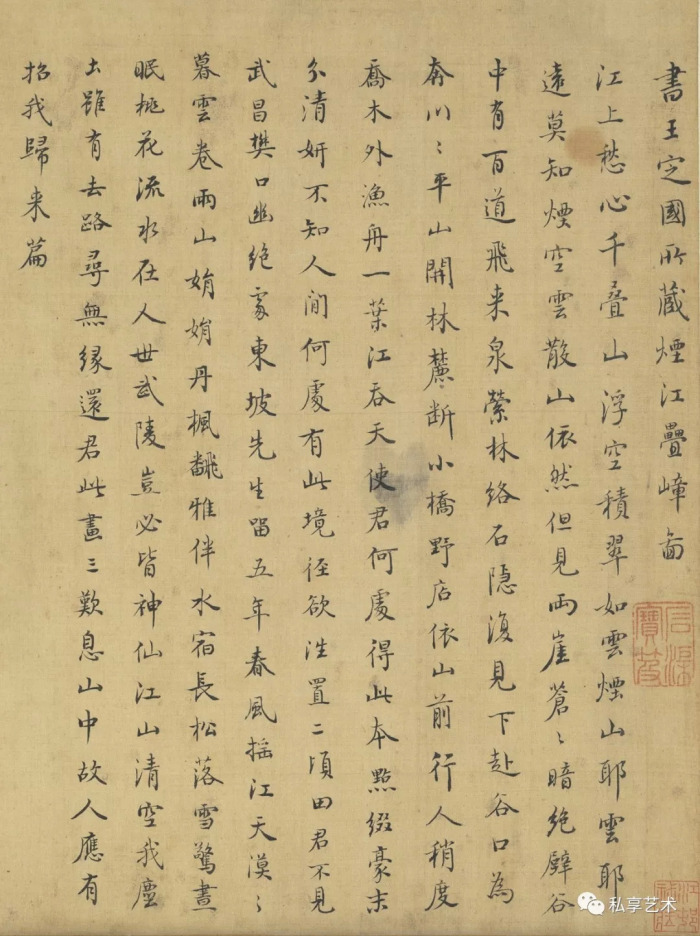 書王定國所藏煙江疊嶂圖
江上愁心千叠山浮空積翠如雲煙山耶雲耶
遠莫知煙空雲散山依然但見兩崖蒼〻暗絶壁谷
中有百道飛来泉縈林絡石隱復見下赴谷口為
奔川〻平山開林麓斷小橋野店依山前行人稍度
喬木外漁舟一葉江吞天使君何處得此本點綴豪末
分清妍不知人間何處有此境徑欲往置二頃田君不見
武昌樊口幽絶處東坡先生留五年春風摇江天漠〻
暮雲卷雨山娟娟丹楓翻雅伴水宿長松落雪驚晝
眠桃花流水在人世武陵豈必皆神仙江山清空我塵
土雖有去路尋無緣還君此畫三歎息山中故人應有
招我歸来篇
私享艺术